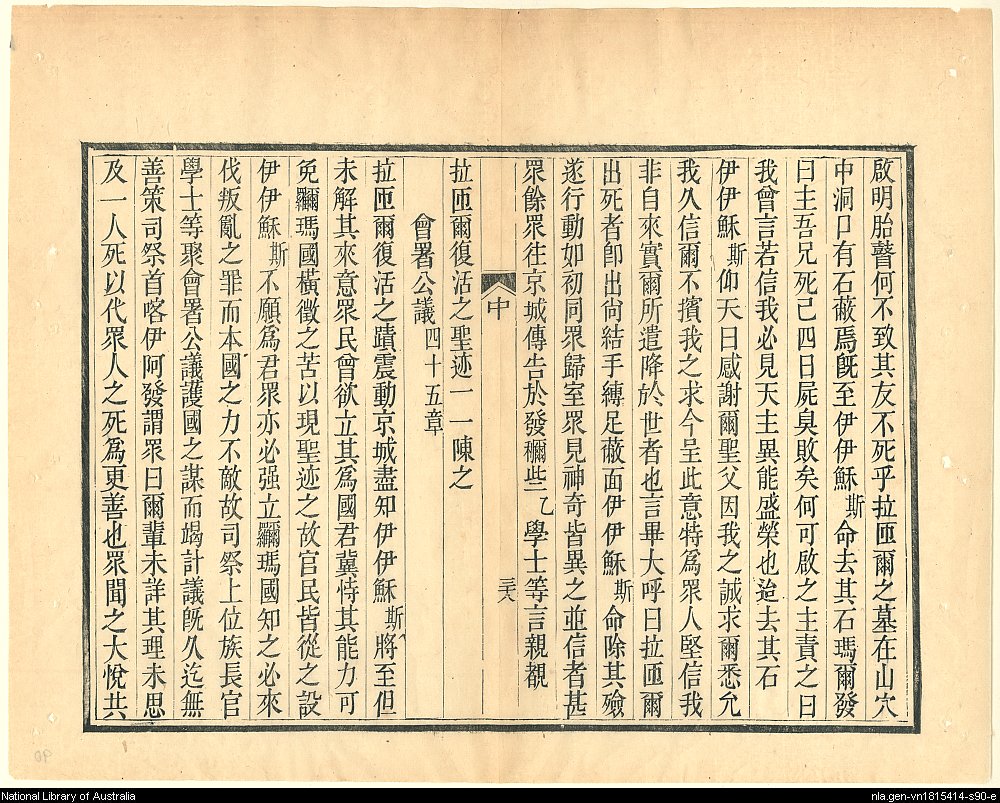 啟明胎瞽何不致其友不死乎拉匝爾之墓在山穴
中洞口有石蔽焉旣至伊伊穌斯命去其石瑪爾發
曰主吾兄死已四日屍臭敗矣何可啟之主責之曰
我曾言若信我必見天主異能盛榮也迨去其石
伊伊穌斯仰天曰感謝爾聖父因我之誠求爾悉允
我久信爾不擯我之求今呈此意特爲眾人堅信我
非自來實爾所遣降於世者也言畢大呼曰拉匝爾
出死者卽出尙結手縛足蔽面伊伊穌斯命除其殮
遂行動如初同眾歸室眾見神奇皆異之並信者甚
眾餘眾往京城傳告於發穪些乙學士等言親覩
中
三六
拉匝爾復活之聖迹一一陳之
會署公議四十五章
拉匝爾復活之蹟震動京城盡知伊伊穌斯將至但
未解其來意眾民曾欲立其爲國君冀恃其能力可
免羅瑪國橫徵之苦以現聖迹之故官民皆從之設
伊伊穌斯不願爲君眾亦必强立羅瑪國知之必來
伐叛亂之罪而本國之力不敵故司祭上位族長官
學士等聚會署公議護國之謀而竭計議旣久迄無
善策司祭首喀伊阿發謂眾曰爾輩未詳其理未思
及一人死以代眾人之死爲更善也眾聞之大悅共
National Library of Australia
nla.gen-vn1815414-s90-e